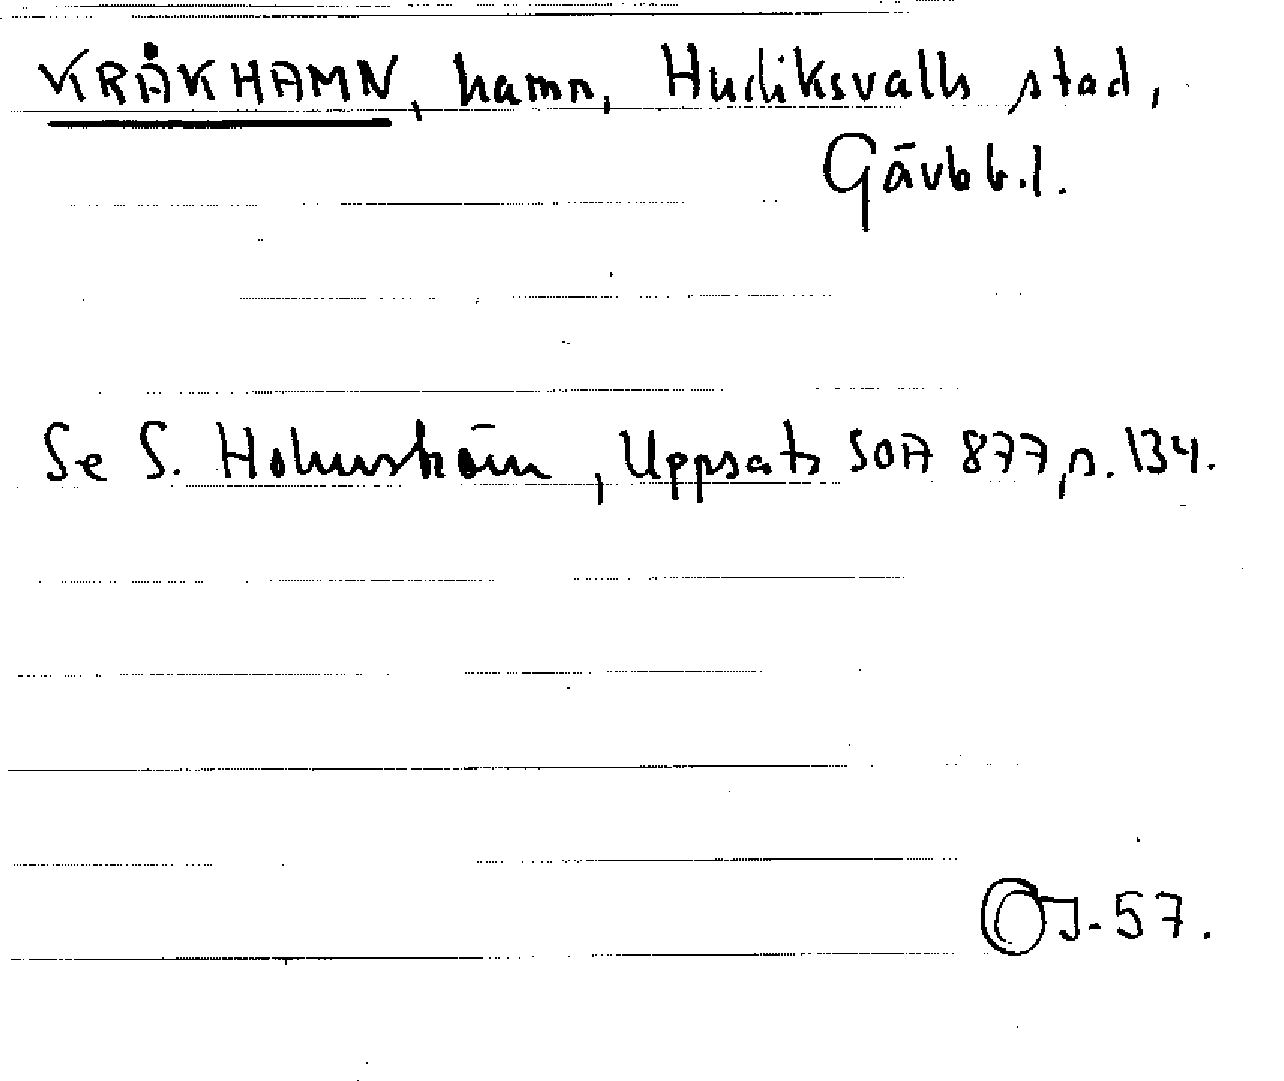 KRÅKHAMN, hamn, Hudiksvalls stad,
Gävleb.l.
Se S. Holmström, Uppsats SOA 877, s. 134.
OJ-57.